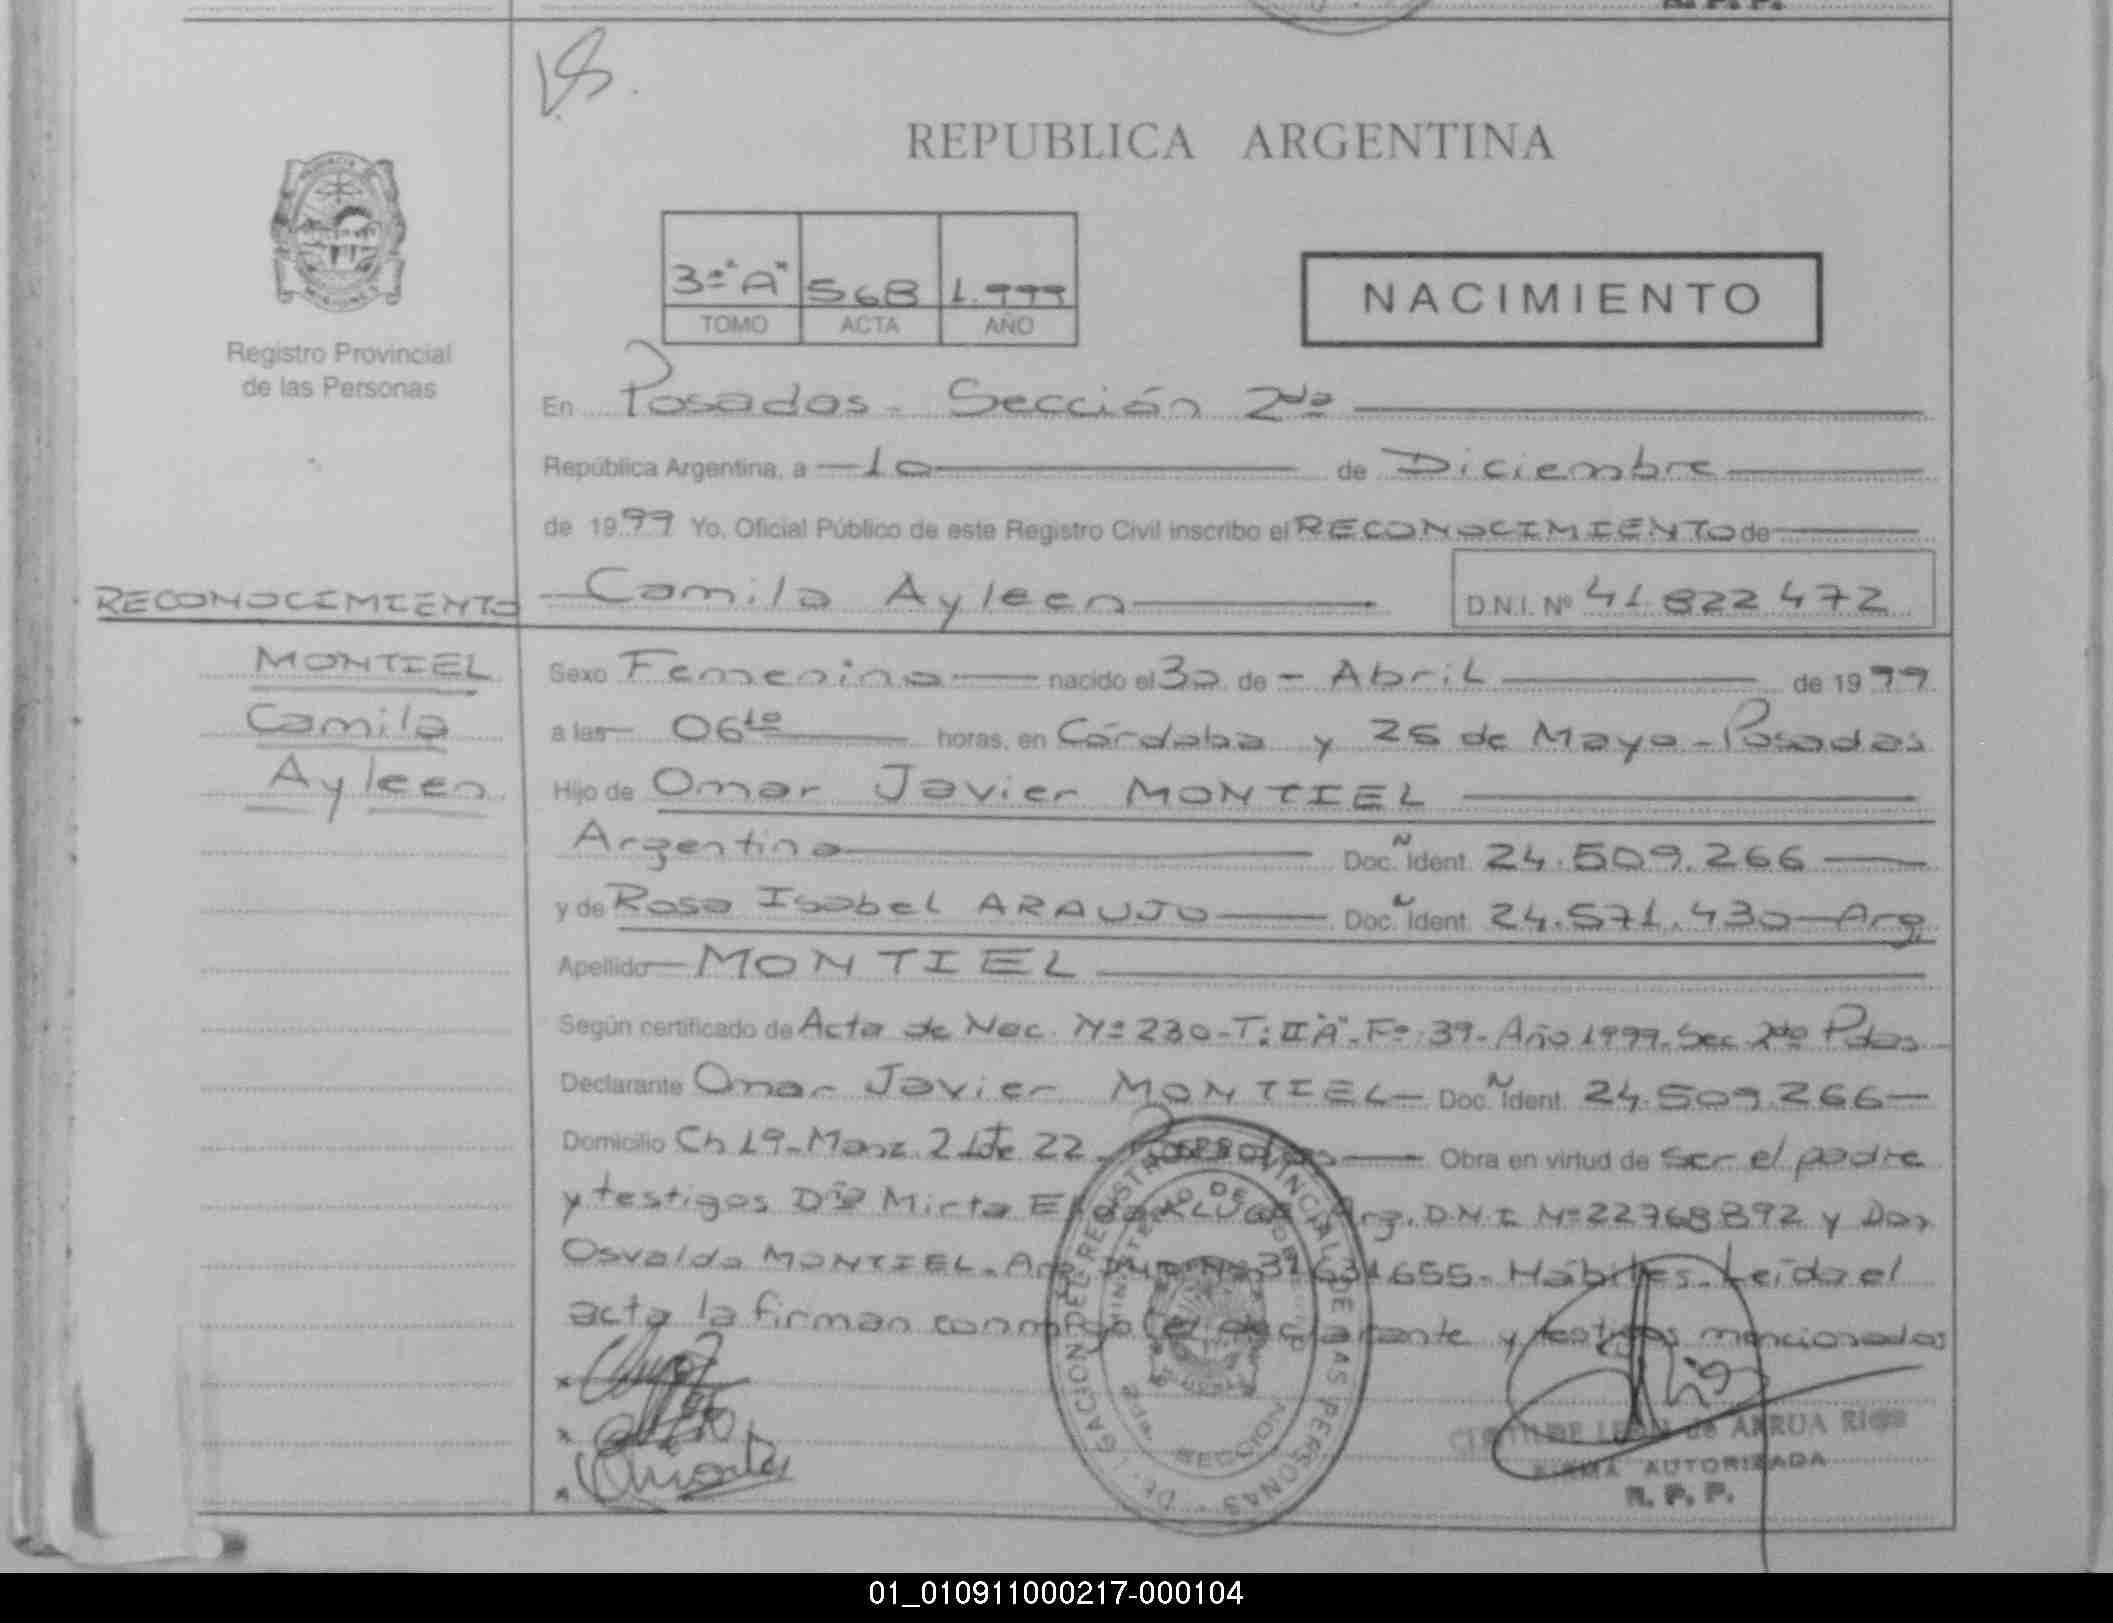 REPUBLICA ARGENTINA
3º "A" 568 1.999
TOMO ACTA AÑO
NACIMIENTO
Registro Provincial
de las Personas
En Posadas - Sección 2da
República Argentina, a 10 de Diciembre
de 1999 Yo, Oficial Público de este Registro Civil inscribo el RECONOCIMIENTO de
Camila Ayleen D.N.I. Nº 41 822 472
RECONOCIMIENTO
MONTIEL
Camila
Ayleen
Sexo Femenino nacido el 30 de Abril de 1999
a las 06 10 horas, en Córdoba y 25 de Mayo - Posadas
Hijo de Omar Javier MONTIEL
Argentino Doc. Ident. 24.509.266
y de Rosa Isabel ARAUJO Doc. Ident. 24.571.430 - Arg.
Apellido MONTIEL
Según certificado de Acta de Nac. Nº 230 - T: II "A" - Fº 39 - Año 1999 - Sec 2da Pdas
Declarante Omar Javier MONTIEL - Doc. Ident. 24.509.266
Domicilio Ch 19 - Manz. 2 Lote 22 - Posadas Obra en virtud de ser el padre
y testigos Dña Mirta Arg. D.N.I Nº 22768892 y Don
Osvaldo MONTIEL - Arg. - Hábiles - Leída el
acta la firman conmigo el declarante y testigos mencionados
DELEGACION DEL REGISTRO PROVINCIAL DE LAS PERSONAS
MINISTERIO DE GOBIERNO
SECCION
CLOTILDE LEON de ARRUA RIOS
FIRMA AUTORIZADA
R. P. P.
01_010911000217-000104